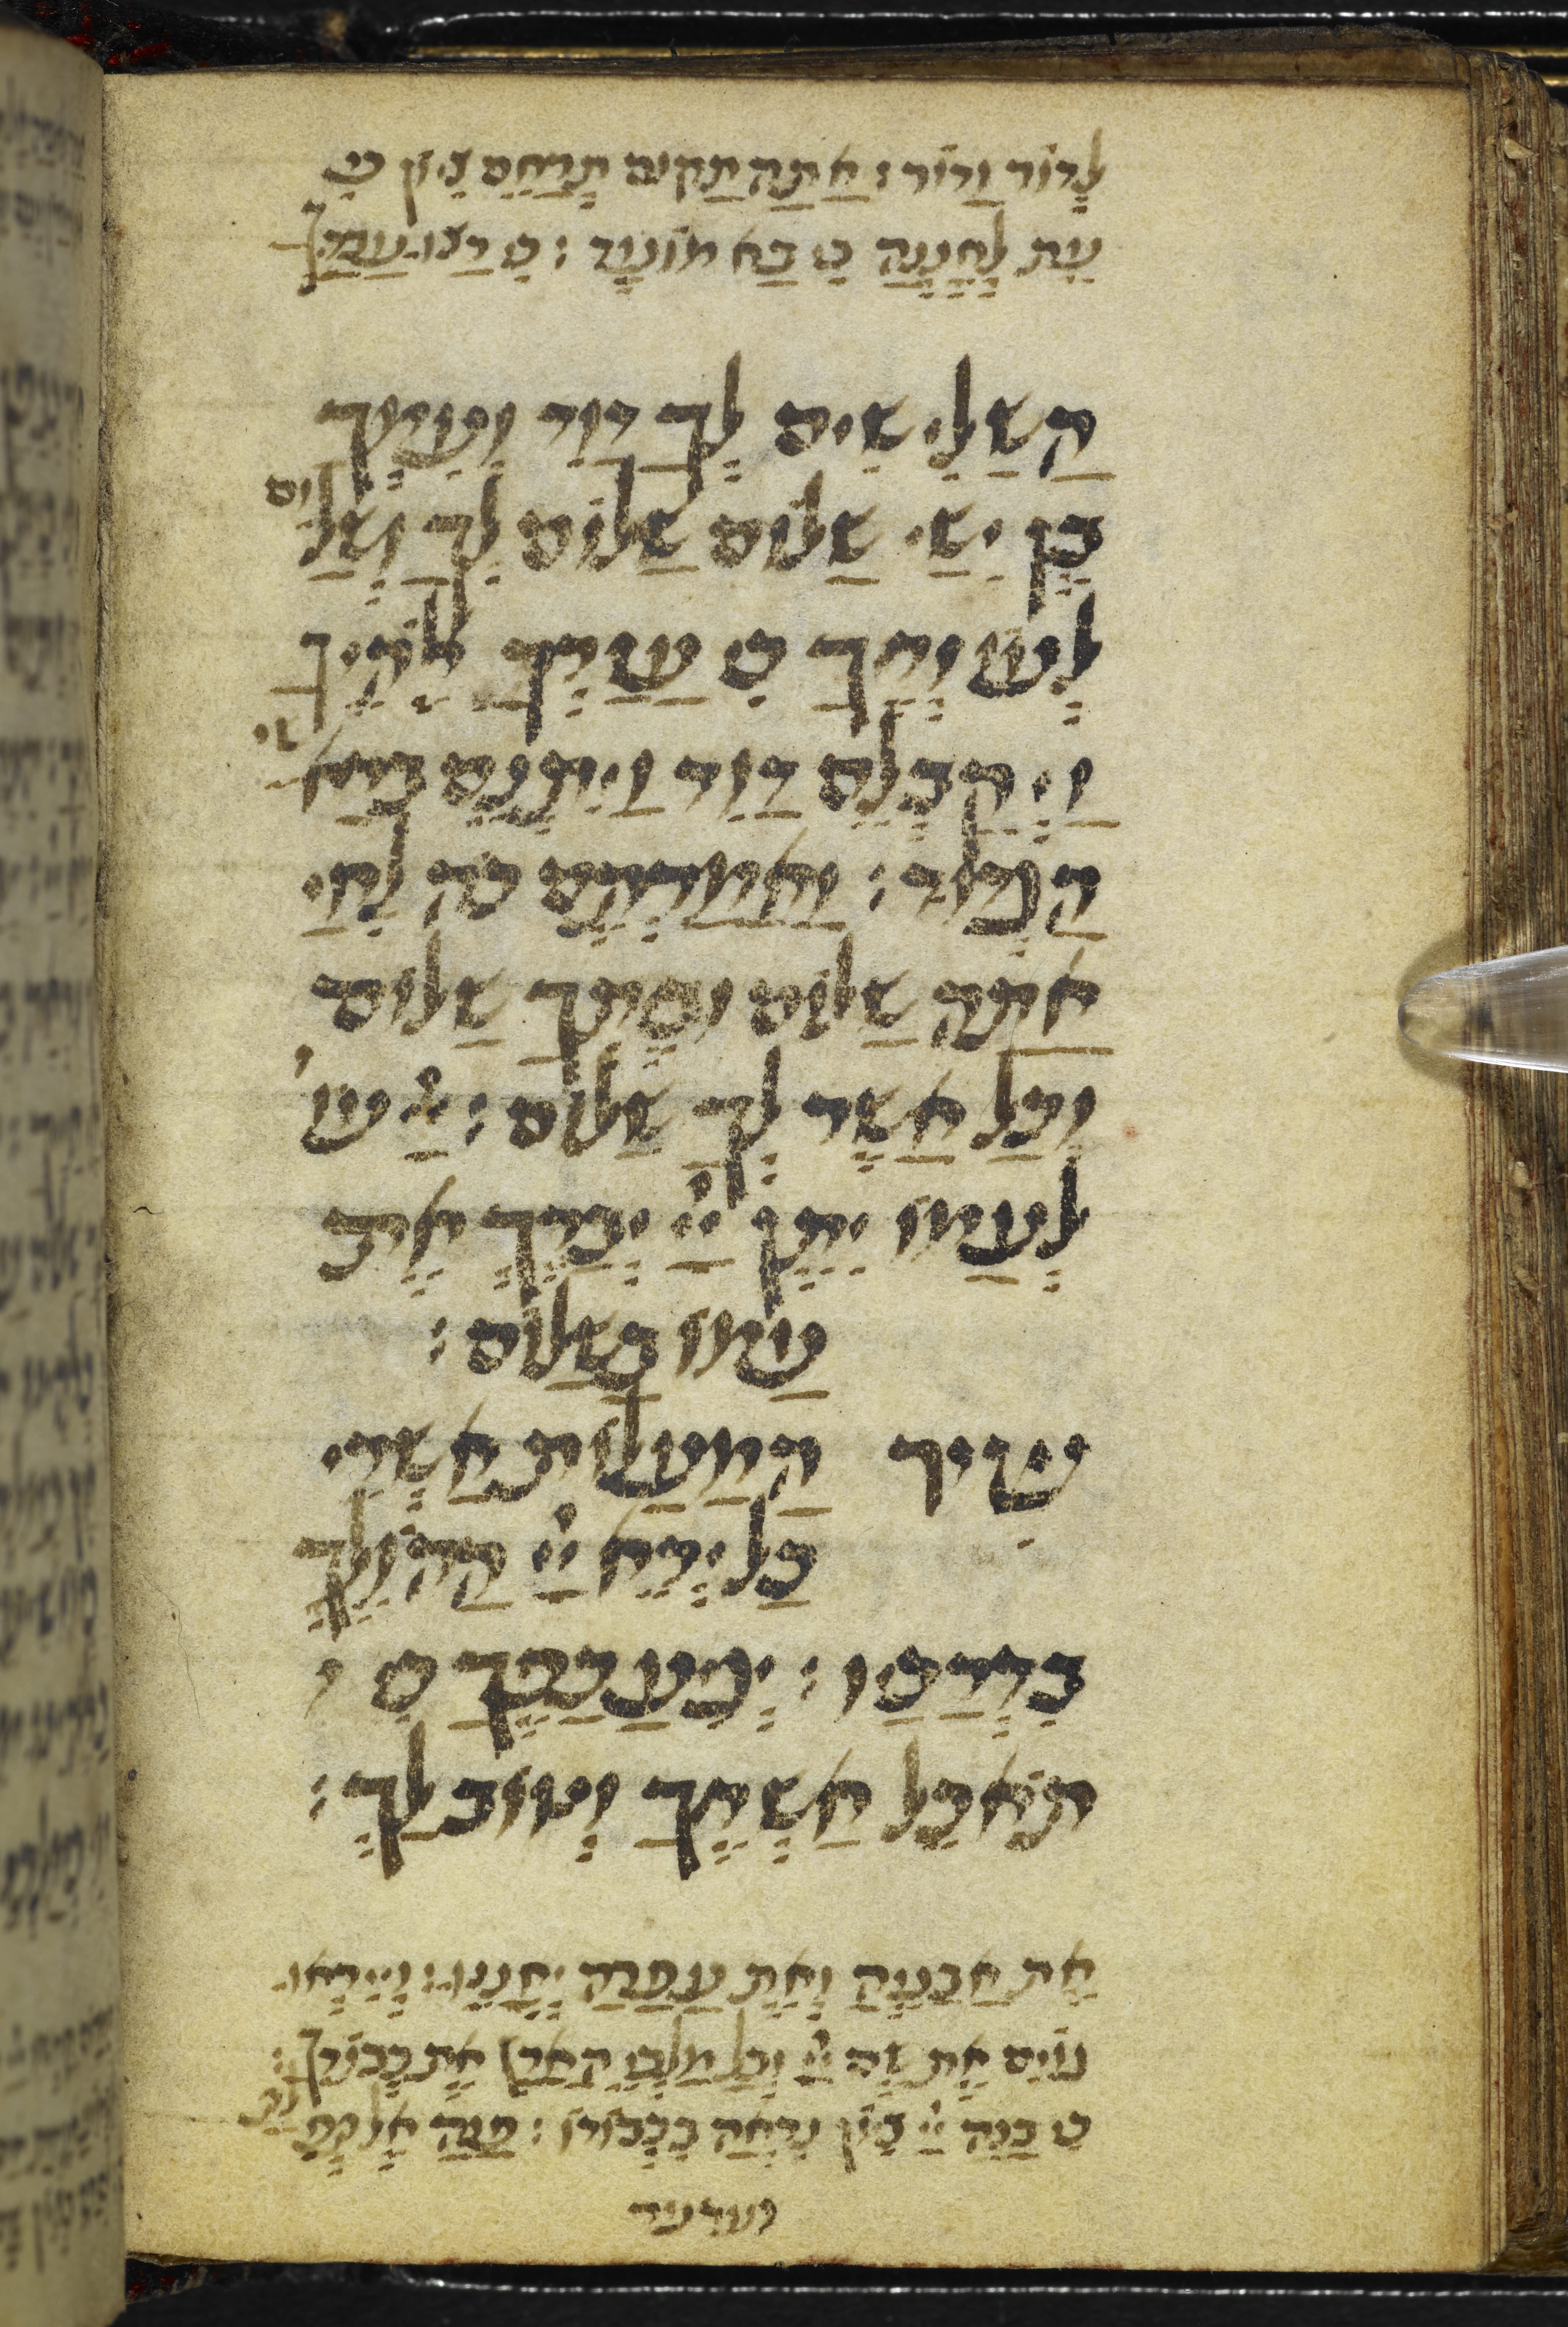 לדור ודור : אתה תקום תרחם ציון כי
עת לחננה כי בא מועד : כי רצו עבדיך
השלישים לך דויד ועמך
בן ישי שלום שלום לך ושלום
לעוזרך כי עזרך אלהיך
ויקבלם דויד ויתנם בראשי
הגדוד : ואמרתם כה לחי
אתה שלום וביתך שלום
וכל אשר לך שלום : יי עוז
לעמו יתן יי יברך את
עמו בשלום :
שיר המעלות אשרי
כל ירא יי ההולך
בדרכיו : יגיע כפיך כי
תאכל אשריך וטוב לך :
את אבניה ואת עפרה יחננו : וייראו
גוים את שם יי וכל מלכי הארץ את כבודך :
כי בנה יי ציון נראה בכבודו : פנה אל תפלת
הערער